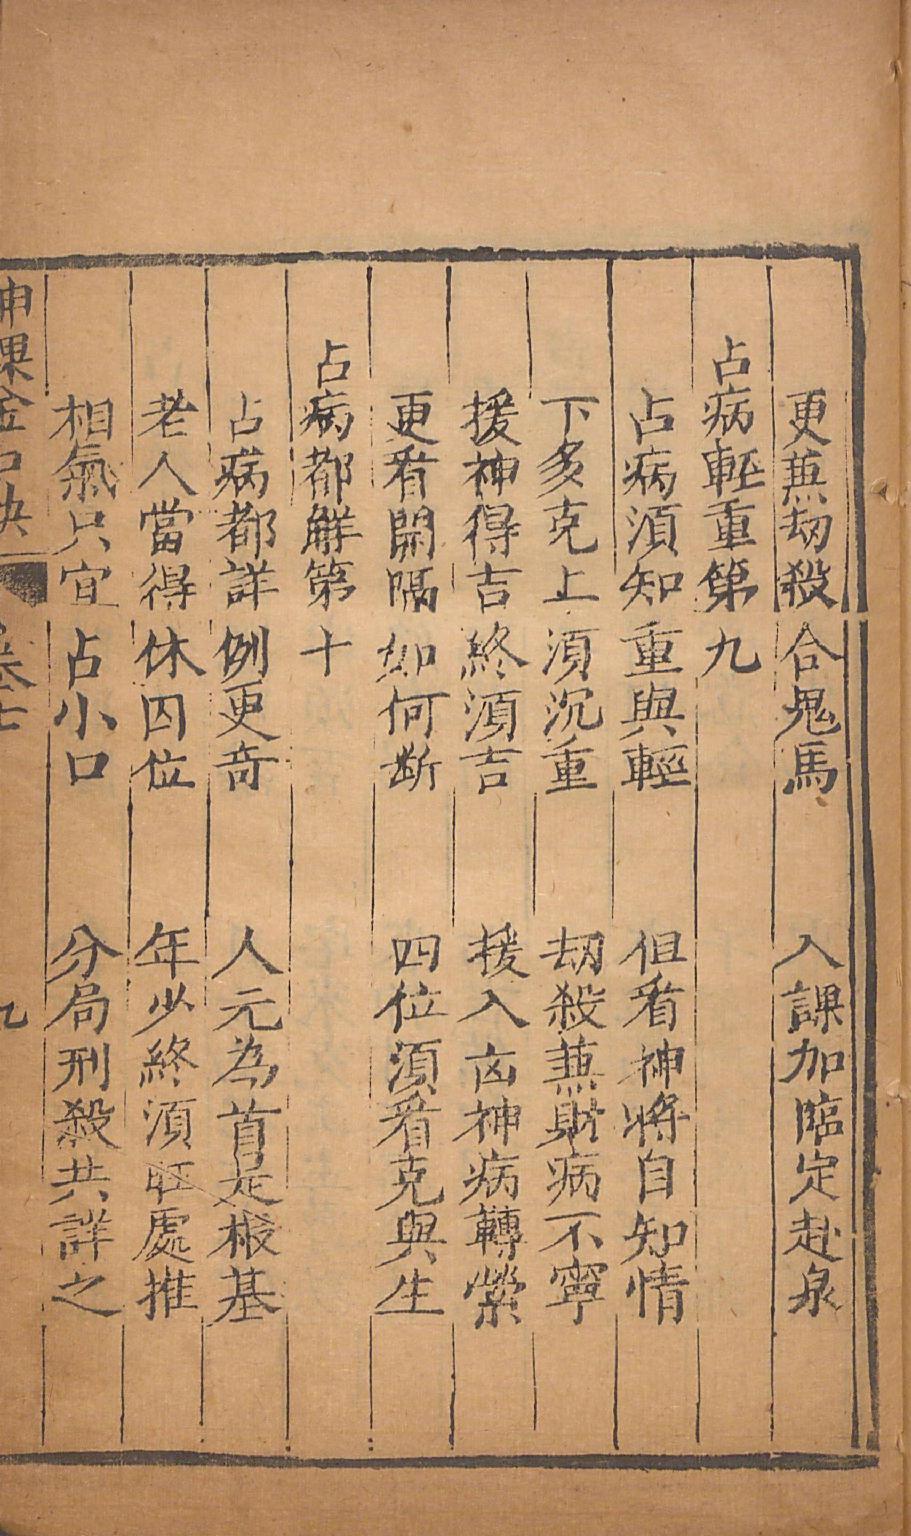 更蕪刼殺合鬼馬　入課加臨定赴泉
占病輕重第九
占病須知重與輕　但看神將自知情
下多克上須沉重　刼殺蕪財病不寧
援神得吉終須吉　援入凶神病轉縈
更看關隔如何斷　四位須看克與生
占病都解第十
占病都詳例更竒　人元為首是根基
老人當得休囚位　年少終須旺處推
相氣只宜占小口　分局刑殺共詳之
神課金口訣　卷七　九